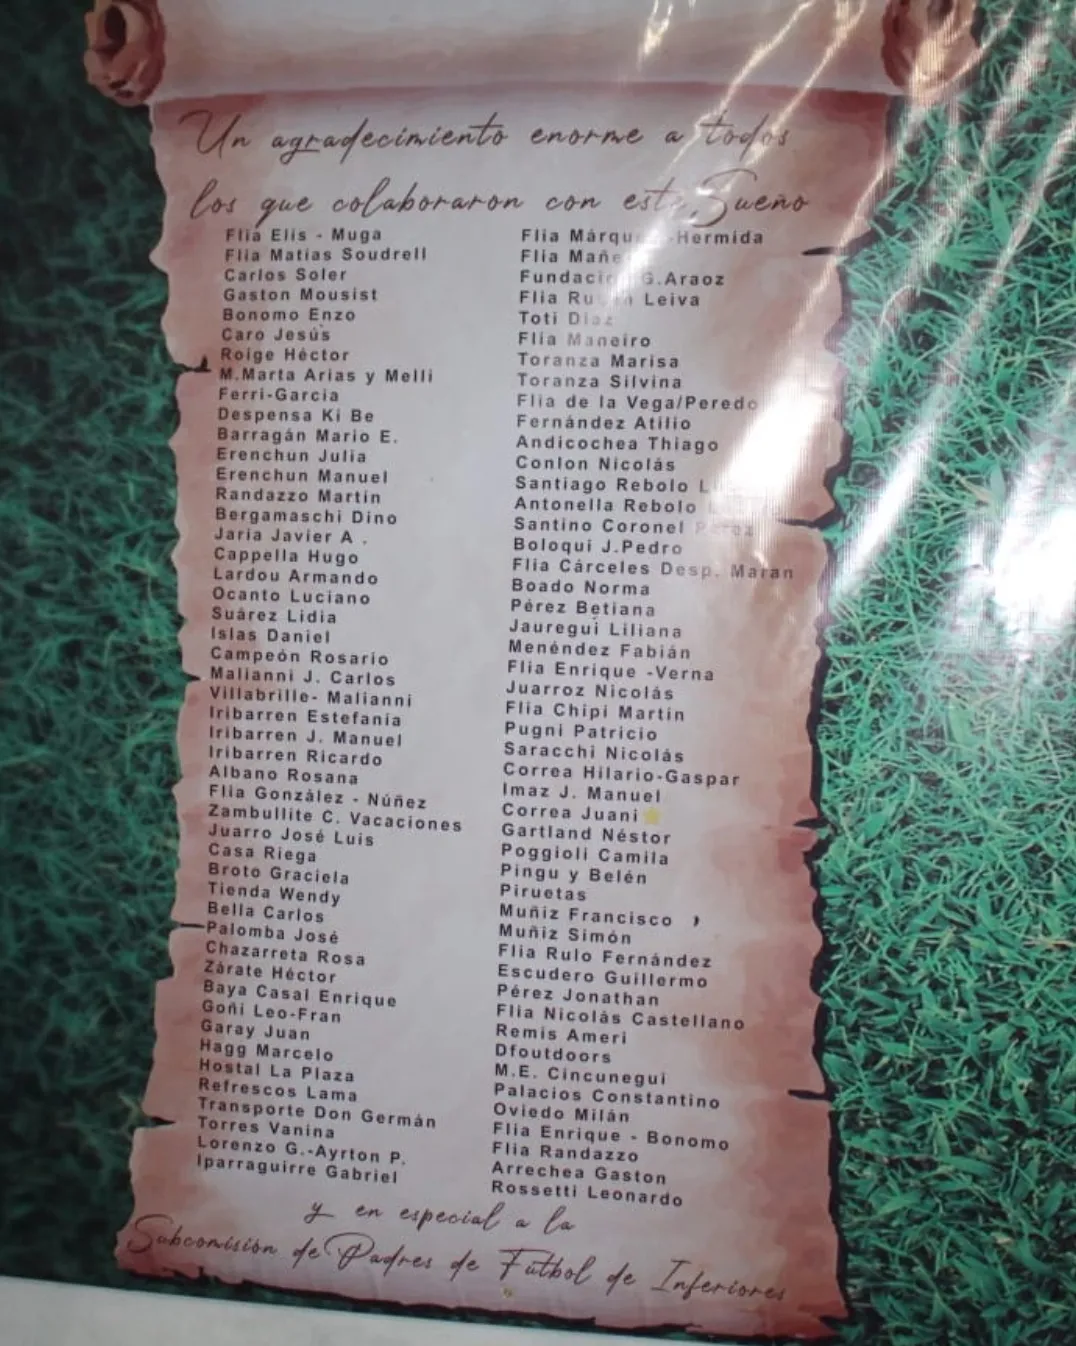 Un agradecimiento enorme a todos
los que colaboraron con este Sueño
Flia Elis - Muga
Flia Matías Soudrell
Carlos Soler
Gaston Mousist
Bonomo Enzo
Caro Jesús
Roige Héctor
M.Marta Arias y Melli
Ferri-Garcia
Despensa Ki Be
Barragán Mario E.
Erenchun Julia
Erenchun Manuel
Randazzo Martín
Bergamaschi Dino
Jaria Javier A .
Cappella Hugo
Lardou Armando
Ocanto Luciano
Suárez Lidia
Islas Daniel
Campeón Rosario
Malianni J. Carlos
Villabrille- Malianni
Iribarren Estefanía
Iribarren J. Manuel
Iribarren Ricardo
Albano Rosana
Flia González - Núñez
Zambullite C. Vacaciones
Juarro José Luis
Casa Riega
Broto Graciela
Tienda Wendy
Bella Carlos
Palomba José
Chazarreta Rosa
Zárate Héctor
Baya Casal Enrique
Goñi Leo-Fran
Garay Juan
Hagg Marcelo
Hostal La Plaza
Refrescos Lama
Transporte Don Germán
Torres Vanina
Lorenzo G.-Ayrton P.
Iparraguirre Gabriel
Flia -Hermida
Flia
G.Araoz
Flia Leiva
Toti Díaz
Flia Maneiro
Toranza Marisa
Toranza Silvina
Flia de la Vega/Peredo
Fernández Atilio
Andicochea Thiago
Conlon Nicolás
Santiago Rebolo
Antonella Rebolo
Santino Coronel Pérez
Boloqui J.Pedro
Flia Cárceles Desp. Maran
Boado Norma
Pérez Betiana
Jauregui Liliana
Menéndez Fabián
Flia Enrique -Verna
Juarroz Nicolás
Flia Chipi Martín
Pugni Patricio
Saracchi Nicolás
Correa Hilario-Gaspar
Imaz J. Manuel
Correa Juani
Gartland Néstor
Poggioli Camila
Pingu y Belén
Piruetas
Muñiz Francisco
Muñiz Simón
Flia Rulo Fernández
Escudero Guillermo
Pérez Jonathan
Flia Nicolás Castellano
Remis Ameri
Dfoutdoors
M.E. Cincunegui
Palacios Constantino
Oviedo Milán
Flia Enrique - Bonomo
Flia Randazzo
Arrechea Gaston
Rossetti Leonardo
y en especial a la
Subcomisión de Padres de Fútbol de Inferiores